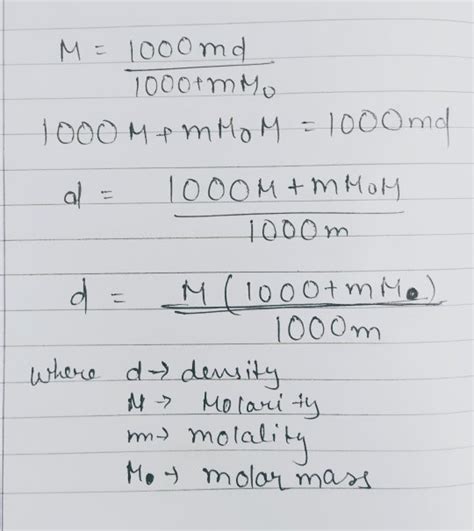 M = 1000md / 1000+mM₀
1000M+mM₀M = 1000md
d = 1000M+mM₀M / 1000m
d = M(1000+mM₀) / 1000m
where d→density
M→ Molarity
m→ molality
M₀→ molar mass